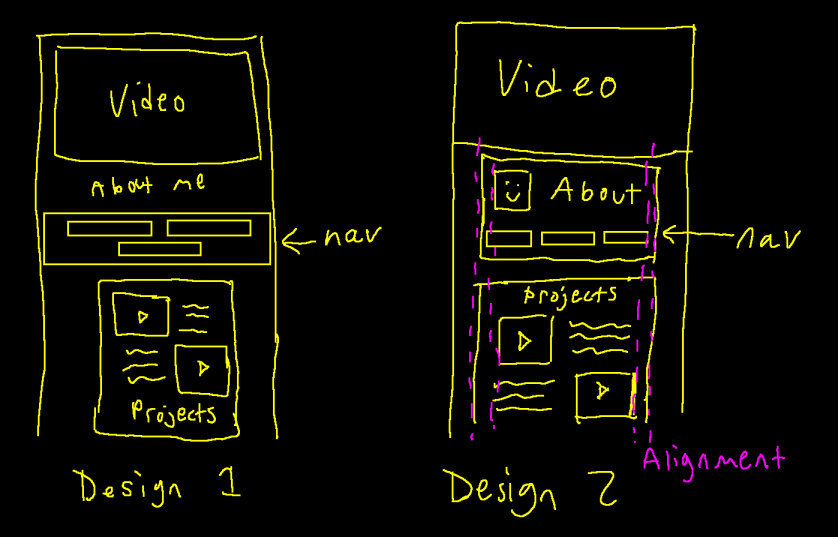 Video
About me
nav
Projects
Design 1
Video
About
nav
Projects
Alignment
Design 2